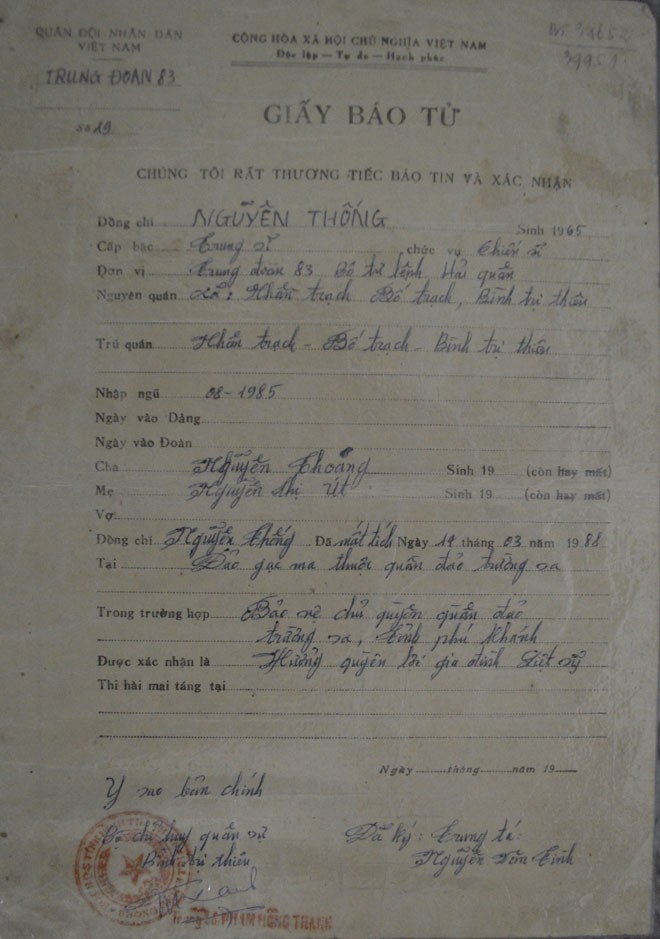 QUÂN ĐỘI NHÂN DÂN
VIỆT NAM
TRUNG ĐOÀN 83
Số 19
CỘNG HÒA XÃ HỘI CHỦ NGHĨA VIỆT NAM
Độc lập — Tự do — Hạnh phúc
39951
GIẤY BÁO TỬ
CHÚNG TÔI RẤT THƯƠNG TIẾC BÁO TIN VÀ XÁC NHẬN
Đồng chí NGUYỄN THỐNG Sinh 1965
Cấp bậc Trung sĩ chức vụ Chiến sĩ
Đơn vị Trung đoàn 83 Bộ tư lệnh Hải quân
Nguyên quán xã: Nhân trạch Bố trạch, Bình trị thiên
Trú quán Nhân trạch - Bố trạch - Bình trị thiên
Nhập ngũ 08-1985
Ngày vào Đảng
Ngày vào Đoàn
Cha Nguyễn Sinh 19 (còn hay mất)
Mẹ Nguyễn thị Út Sinh 19 (còn hay mất)
Vợ
Đồng chí Nguyễn Thống Đã mất tích Ngày 14 tháng 03 năm 1988
Tại Đảo gạc ma thuộc quần đảo trường sa
Trong trường hợp Bảo vệ chủ quyền quần đảo
trường sa, tỉnh phú khánh
Được xác nhận là Hưởng quyền lợi gia đình Liệt sỹ
Thi hài mai táng tại
Ngày tháng năm 19
Y sao bản chính
Bộ chỉ huy quân sự
Bình trị thiên
Đã ký: Trung tá:
Nguyễn Văn
PHẠM HỒNG THANH